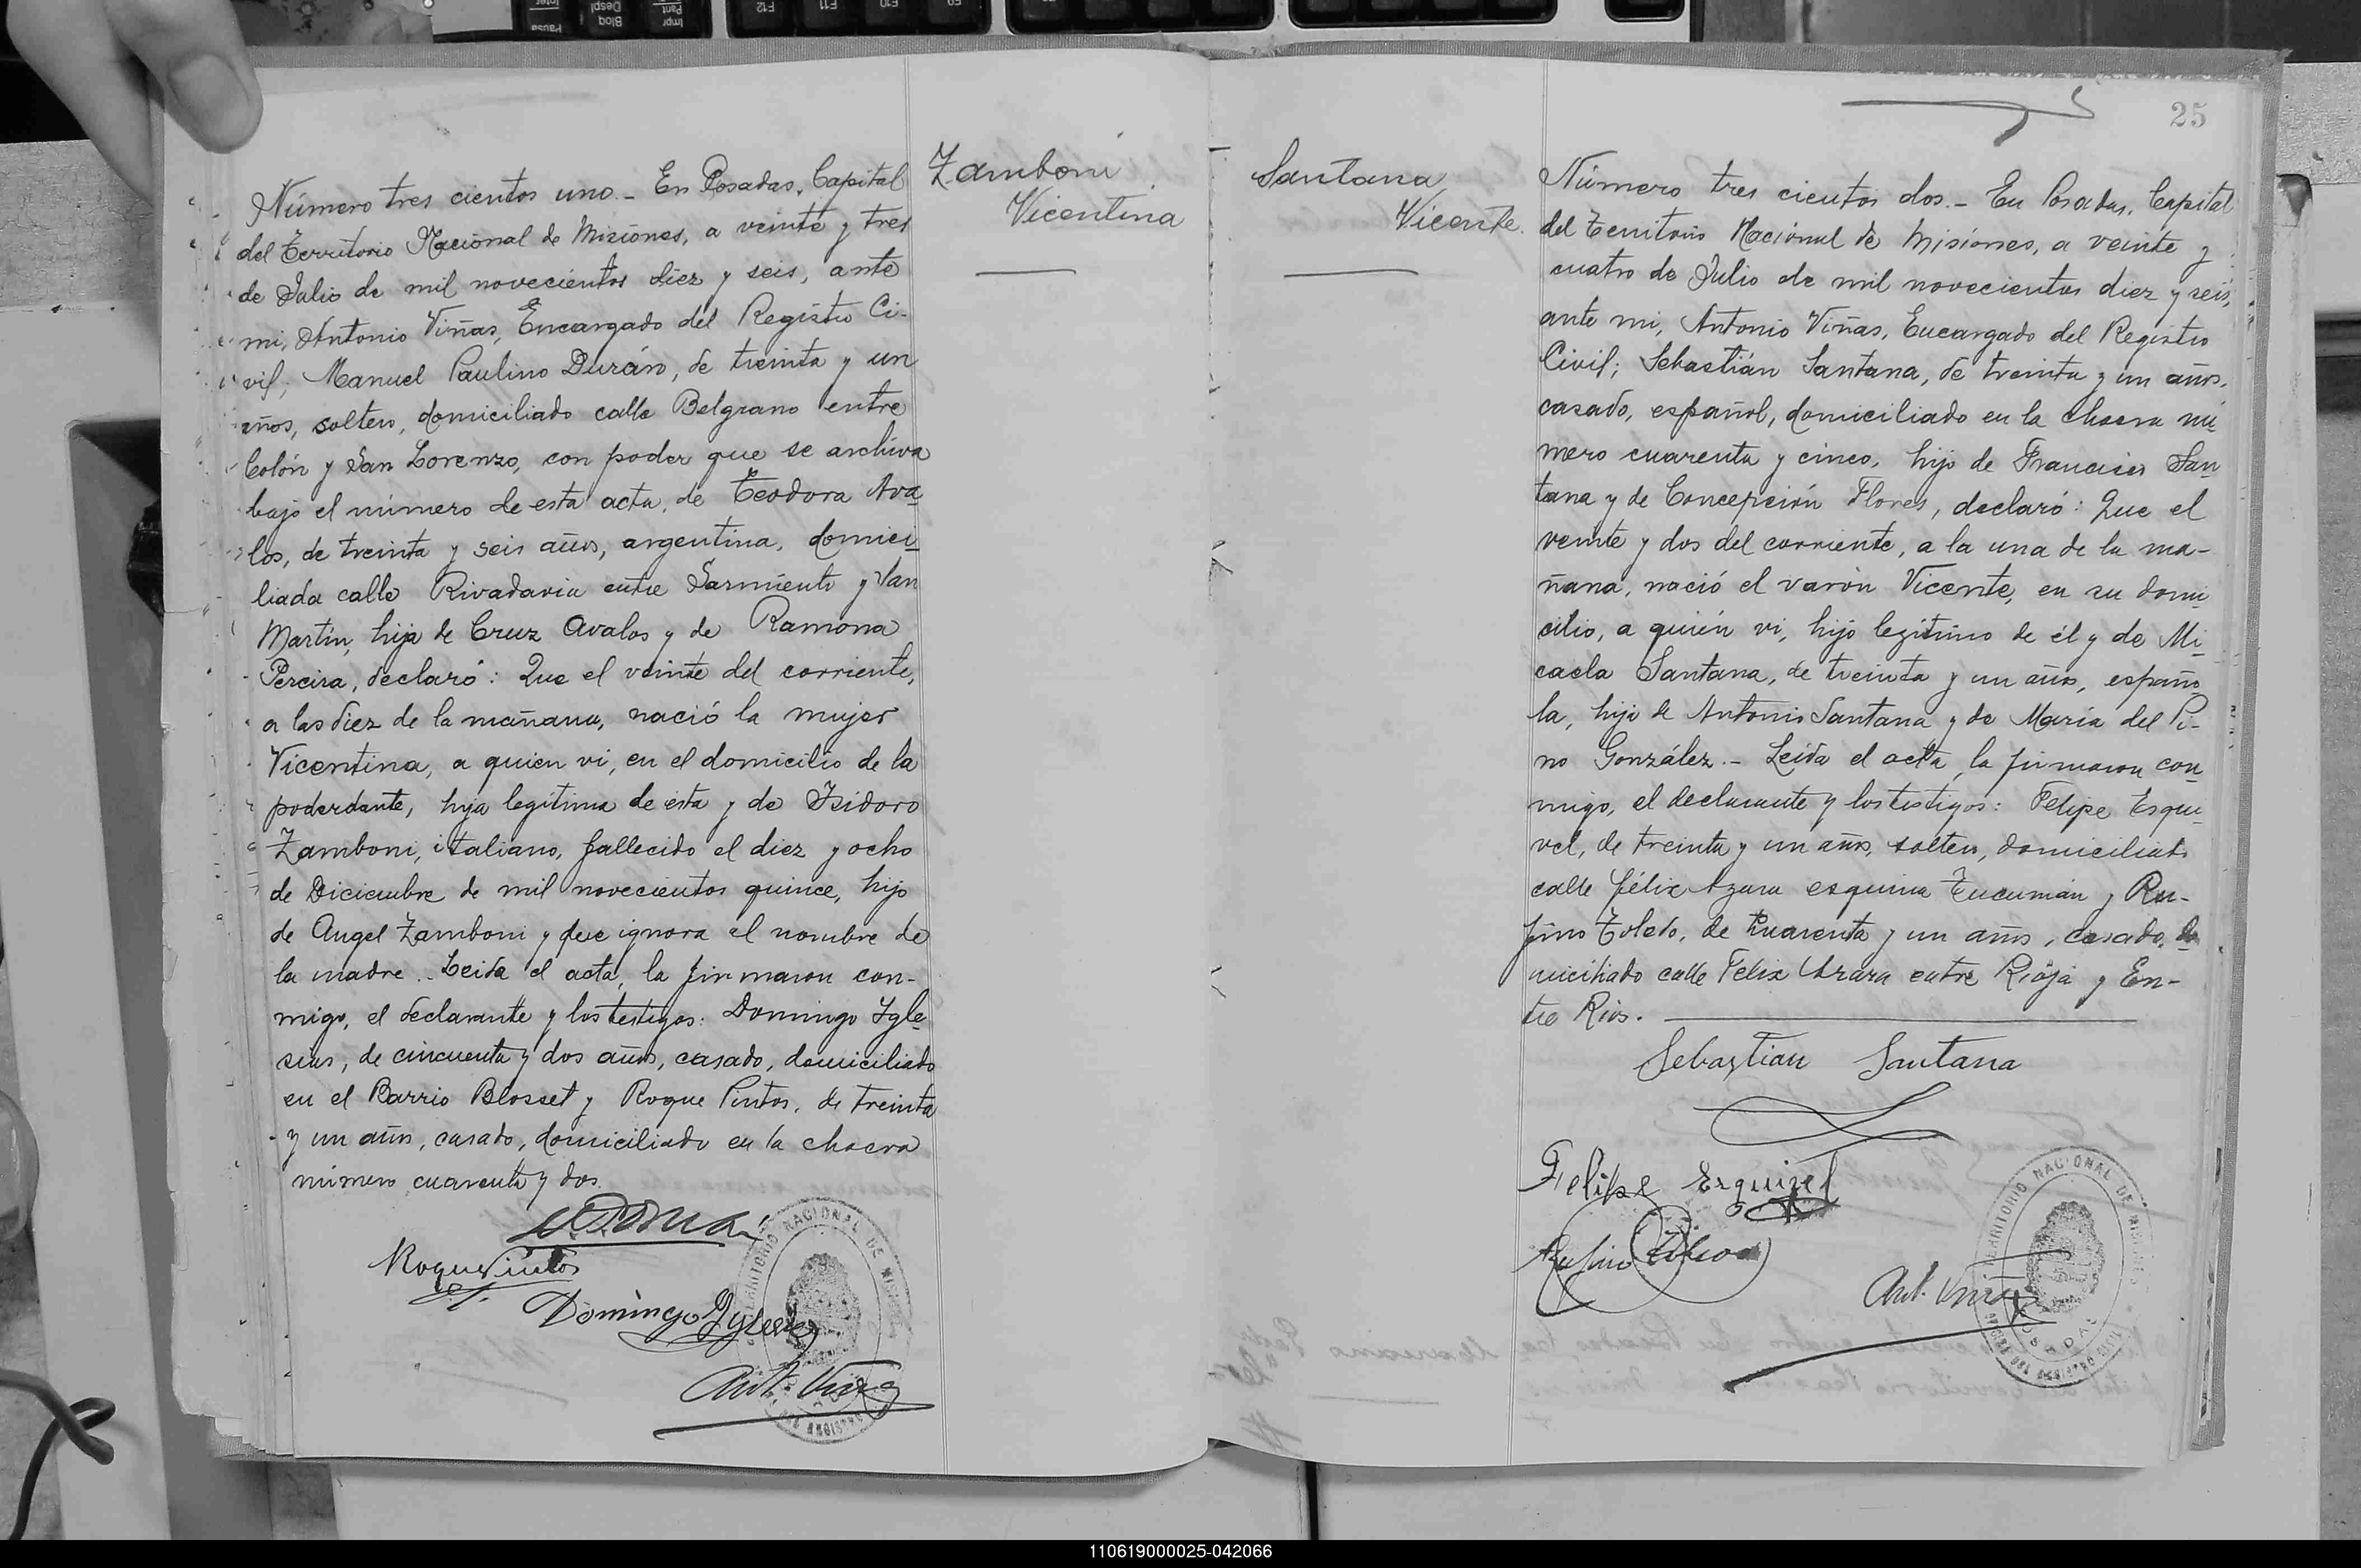 Número tres cientos uno.- En Posadas, Capital
del Territorio Nacional de Misiones, a veinte y tres
de Julio de mil novecientos diez y seis, ante
mi, Antonio Viñas, Encargado del Registro Ci-
vil; Manuel Paulino Durán, de treinta y un
años, soltero, domiciliado calle Belgrano entre
Colón y San Lorenzo, con poder que se archiva
bajo el número de esta acta, de Teodora Ava
los, de treinta y seis años, argentina, domici
liada calle Rivadavia entre Sarmiento y San
Martín, hija de Cruz Avalos y de Ramona
Pereira, declaró: Que el veinte del corriente,
a las diez de la mañana, nació la mujer
Vicentina, a quien vi, en el domicilio de la
poderdante, hija legítima de ésta y de Isidoro
Zamboni, italiano, fallecido el diez y ocho
de Diciembre de mil novecientos quince, hijo
de Angel Zamboni y que ignora el nombre de
la madre.. Leida el acta, la firmaron con-
migo, el declarante y los testigos: Domingo Ygle
sias, de cincuenta y dos años, casado, domiciliado
en el Barrio Blosset y Roque Pintos, de treinta
y un años, casado, domiciliado en la chacra
número cuarenta y dos.
Roque Pintos
Domingo Yglesias
Ant. Viñas
TERRITORIO NACIONAL DE MISIONES
Zamboni
Vicentina
Santana
Vicente.
25
Número tres cientos dos.- En Posadas, Capital
del Territorio Nacional de Misiones, a veinte y
cuatro de Julio de mil novecientos diez y seis,
ante mi, Antonio Viñas, Encargado del Registro
Civil; Sebastián Santana, de treinta y un años,
casado, español, domiciliado en la chacra nú
mero cuarenta y cinco, hijo de Francisco San
tana y de Concepción Flores, declaró: Que el
veinte y dos del corriente, a la una de la ma-
ñana, nació el varón Vicente, en su domi
cilio, a quién vi, hijo legítimo de él y de Mi
caela Santana, de treinta y un años, españo
la, hija de Antonio Santana y de María del Pi-
no González.- Leída el acta, la firmaron con
migo, el declarante y los testigos: Felipe Esqui
vel, de treinta y un años, soltero, domiciliado
calle félix Azara esquina Tucumán y Ru-
fino Toledo, de cuarenta y un años, casado, do
miciliado calle Felix Azara entre Rioja y En-
tre Rios.
Sebastian Santana
Felipe Esquivel
Rufino Toledo
Ant. Viñas
TERRITORIO NACIONAL DE MISIONES
POSADAS
110619000025-042066